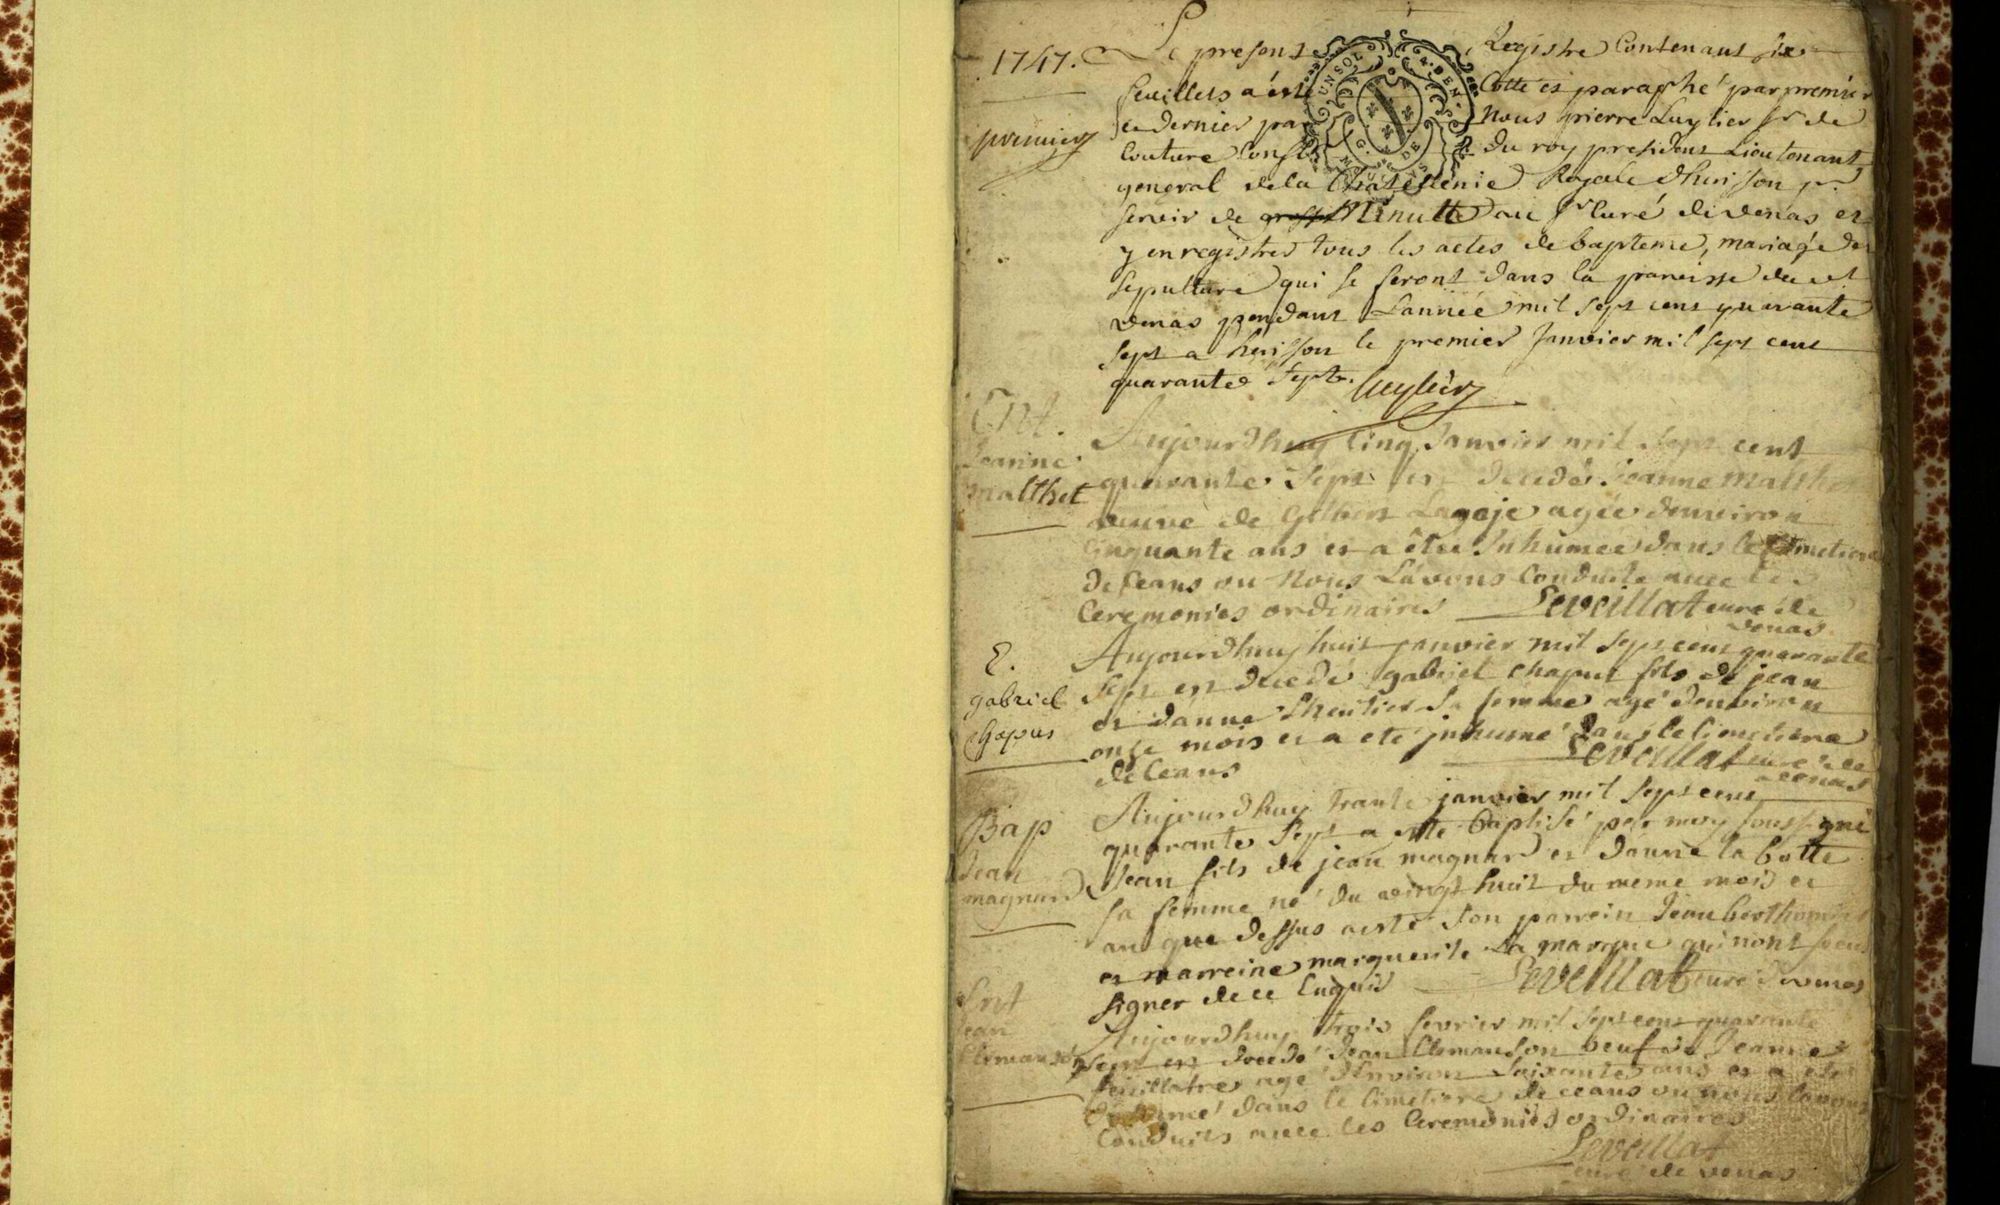 1747.
premier
Le present Registre Contenant six
feuillets a été Cotté et paraphé par premier
et dernier par Nous pierre Luylier sr de
Couture Consr du roy president Lieutenant
general de la Chatellenie Royale dherisson pr
servir de Minutte au sr Curé de venas et
y enregistrer tous les actes de bapteme, mariage et
sepulture qui se feront dans la paroisse du dt
venas pendant L'année mil sept cent quarante
sept a herisson le premier Janvier mil sept cent
quarante sept. Luylier
UN SOL 4. DEN.
G. DE
Ent.
Jeanne
malthet
Aujourdhuy Cinq Janvier mil sept cent
quarante sept est decedée Jeanne malthet
veuve de Gilbert Lageje agée denviron
Cinquante ans et a êtée Inhumée dans le Cimetiere
de seans ou Nous L'avons Conduite avec les
Ceremonies ordinaires Leveillat curé de
venas
E.
gabriel
Chapus
Aujourdhuy huit janvier mil sept cent quarante
sept est decedé gabriel chapus fils de jean
et danne sa femme agé denviron
onze mois et a eté inhumé dans le Cimetiere
de Ceans Leveillat curé de
venas
Bap
Jean
magnard
Aujourdhuy trante janvier mil sept cent
quarante sept a esté baptisé par moy soussigné
Jean fils de jean magnard et danne la botte
sa femme né du vingt huit du meme mois et
an que dessus a esté son parrein Jean berthomier
et marreine marguerite La marque qui nont sceus
signer de ce Enquis Leveillat curé de venas
Ent
Jean
Clemanson
Aujourdhuy trois fevrier mil sept cent quarante
sept est decedé Jean Clemanson veuf de Jeanne
agé denviron Soixante ans et a eté
Inhumé dans le Cimetiere de ceans ou nous lavons
Conduits avec les Ceremonies ordinaires
Leveillat
curé de venas